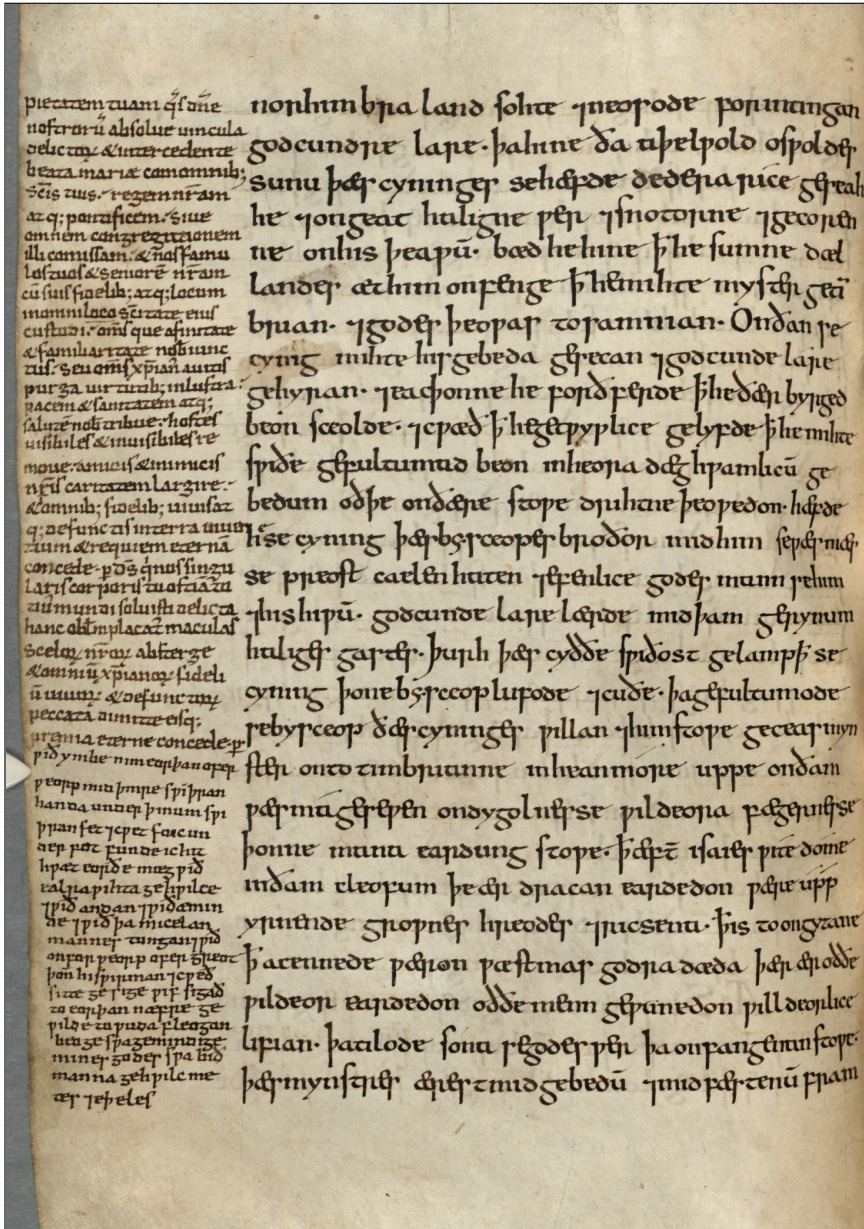 pietatem tuam qs dn̄e
nostrorū absolue uincula
delictoꝝ & intercedente
beata maria cum omnib;
sc̄is tuis · regem nr̄am
atq; pontificem · Siue
omnem congregationem
illi comissam · & nos famu
los tuos & seniorē nr̄am
cū suis fidelib; atq; locum
in omni loco sc̄itate eius
custodi · om̄s que afinitate
& familiaritate nob̄ iunc
tus · Seu om̄s xp̄ian̄ a uitiis
purga uirtutib; inlustra ·
pacem & sanitatem atq;
salutē nob̄ tribue · hostes
uisibiles & inuisibiles re
moue · amicis & inimicis
nr̄is caritatem largire ·
& omnib; fidelib; uiuis at
q; defunctis in terra uiuen
tium & requiem eternā
concede · ꝑ
laris corporis tuo
tiū mundi soluisti delicta
hanc obl̄m placat̄ maculas
scelorꝝ nr̄orꝝ absterge
& omniū xp̄ianorꝝ fideli
ū uiuorꝝ & defunctorꝝ
peccata dimitte eisq;
premia eterne concede · ꝑ
ƿið ymbe nim eorþan ofer
ƿeorp mid þinre sƿiþran
handa under þinum sƿi
þran fet ⁊ cƿet fo ic un
der fot funde ic hit
hƿæt eorðe mæg ƿið
ealra ƿihta gehƿilce
⁊ ƿið andan ⁊ ƿið æmin
de ⁊ ƿið þa micelan
mannes tungan ⁊ ƿið
on forƿeorp ofer greot
þoñ hi sƿirman ⁊ cƿeð
sitte ge sige ƿif sigað
to eorþan næfre ge
ƿilde to ƿuda fleogan
beo ge sƿa gemindige
mines godes sƿa bið
manna gehƿilc me
tes ⁊ eþeles
norðhimbria land sohte ⁊ neosode for intingan
godcundre lare · þa hine ða æþelƿold osƿoldes
sunu þæs cyninges se hæfde dedera rice geseah
he ⁊ ongeat haligne ƿer ⁊ snotorne ⁊ gecoren
ne on his þeaƿū · bæd he hine þ̄ he sumne dæl
landes æt him onfenge þ̄ he mihte mynster geti
brian · ⁊ godes þeoƿas to samnian · On ðan se
cynig mihte hi gebeda gesecan ⁊ godcunde lare
gehyran · ⁊ eac þonne he forðferde þ̄ he ðær byriged
beon sceolde · ⁊ cƿæð þ̄ he getryƿlice gelyfde þ̄ he mihte
sƿiðe gefultumad beon in heora dæghƿamlicū ge
bedum oððe on ðære stoƿe drihtne þeoƿedon · hæfde
he se cyning þæs bysceopes broðor mid him se ƿæs mæs
se preost caelen haten ⁊ efenlice godes mann se him
⁊ his hiƿū · godcunde lare lærde mid þam gerynum
haliges gastes · þurh þæs cyððe sƿiðost gelamp þ̄ se
cynig þone bysceop lufode ⁊ cuðe · þa gefultumode
se bysceop ðæs cyninges ƿillan ⁊ him stoƿe geceas myn
ster on to timbrianne in hean more uppe on ðam
ƿæs ma geseƿen on dygolnesse ƿildeora fægernesse
þonne manna eardung stoƿe · þ̄ æft̄ isaies ƿitedome
in ðam cleofum þe ær dracan eardedon ƿære upp
yrnende groƿnes hreodes ⁊ ricsena · þ̄ is to ongytane
þ̄ acennede ƿæron ƿæstmas godra dæda þær ær oððe
ƿildeor eardedon oððe menn geƿunedon ƿilldeorlice
lifian · þa tilode sona se godes ƿer þa onfangenan stoƿe
þæs mynstres ærest mid gebedū ⁊ mid fæstenū fram